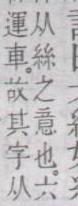 从絲之意也。六
運車。故其字从